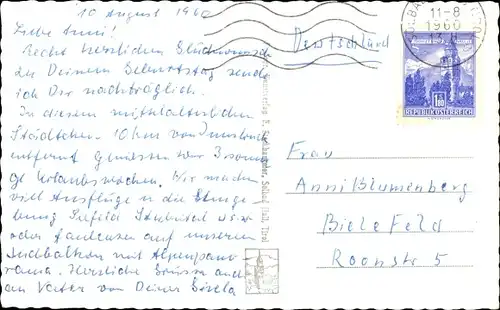 10 August 1960
Liebe Anni!
Recht herzlichen Glückwunsch
zu Deinem Geburtstag send
ich Dir nachträglich.
In diesem mittelalterlichen
Städtchen 10 km von Innsbruck
entfernt geniessen wir 3 sonni
ge Urlaubswochen. Wir machen
viel Ausflüge in die Umge
bung Seefeld Stubaital usw
oder faulenzen auf unserem
Südbalkon mit Alpenpano
rama. Herzliche Grüsse auch
an Vater von Deiner Gisela
Deutschland
11-8
1960
1.80
REPUBLIK ÖSTERREICH
Frau
Anni Blumenberg
Bielefeld
Roonstr 5
Solbad Hall, Tirol